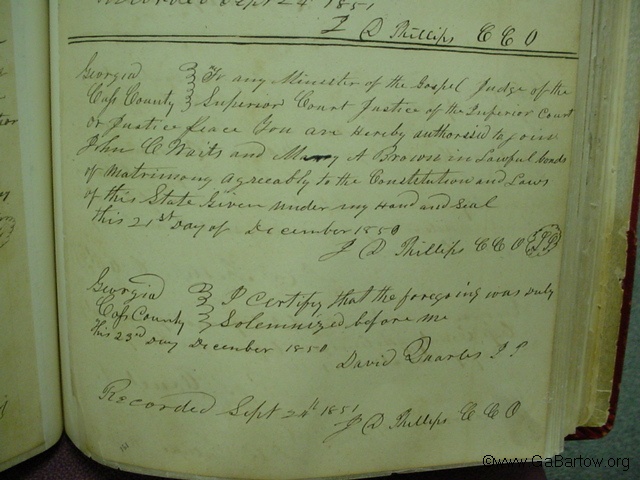 Recorded Sept 24th 1851
J D Phillips C C O
Georgia To any Minister of the Gospel Judge of the
Cass County Superior Court Justice of the Superior Court
Or Justice Peace You are Hereby authorised to join
John C Waits and Mary A Brown in Lawful bonds
of Matrimony Agreeably to the Constitution and Laws
of this State Given under my Hand and Seal
this 21st Day of December 1850
J D Phillips C C O
Georgia I Certify that the foregoing was duly
Cass County Solemnized before me
This 23rd Day December 1850
David Quarles J P
Recorded Sept 24th 1851
J D Phillips C C O
©www.GaBartow.org